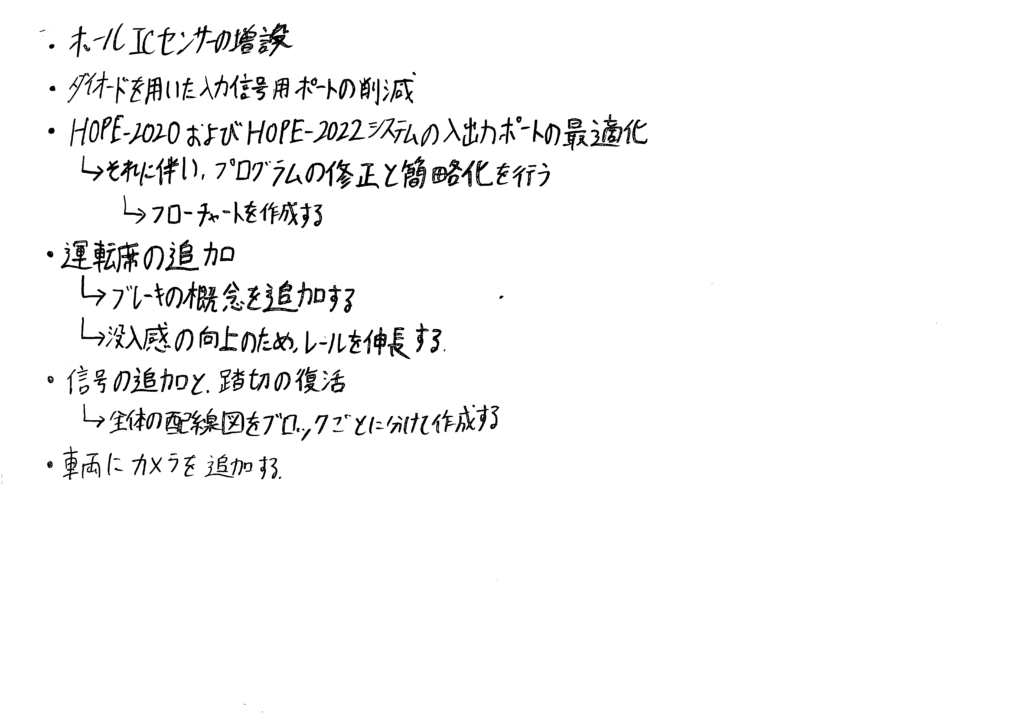 ・ホールICセンサーの増設
・ダイオードを用いた入力信号用ポートの削減
・HOPE-2020およびHOPE-2022システムの入出力ポートの最適化
↳それに伴い、プログラムの修正と簡略化を行う
↳フローチャートを作成する
・運転席の追加
↳ブレーキの概念を追加する
↳没入感の向上のため、レールを伸長する.
・信号の追加と、踏切の復活
↳全体の配線図をブロックごとに分けて作成する
・車両にカメラを追加する.